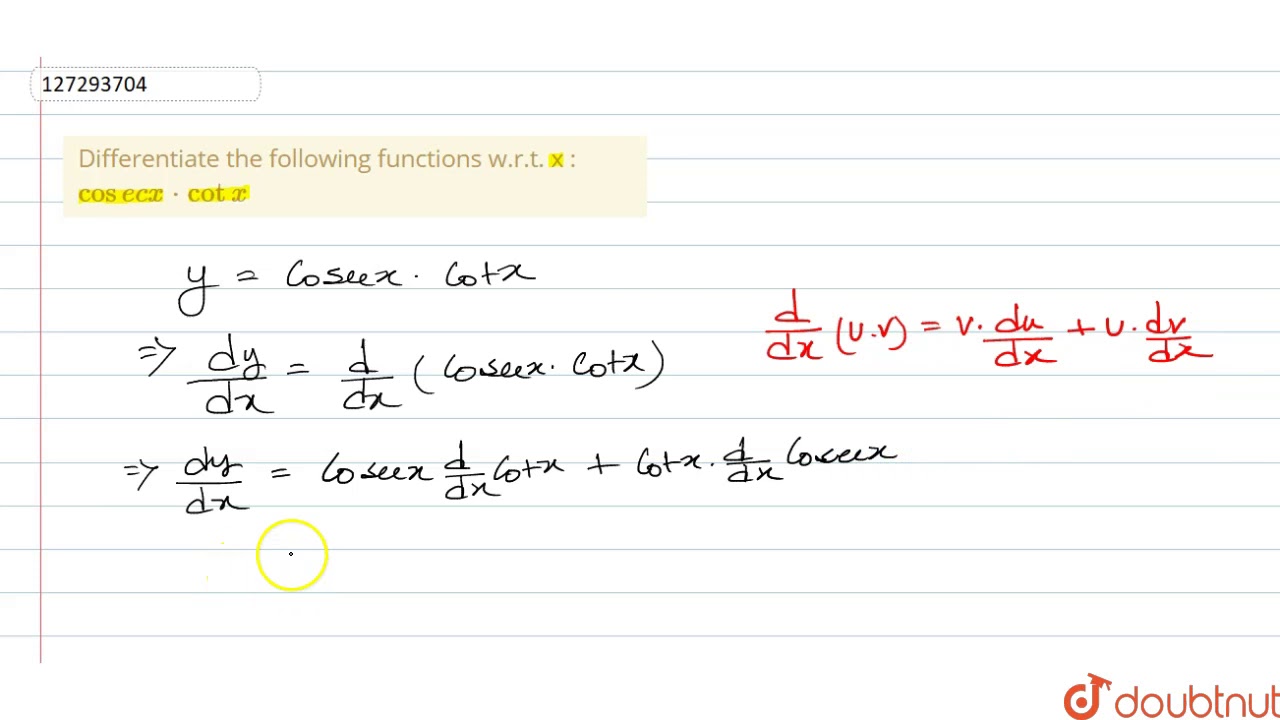 127293704
Differentiate the following functions w.r.t. x :
cos ecx · cot x
y = Cosecx · Cotx
d/dx (u.v) = v. du/dx + u. dv/dx
=> dy/dx = d/dx (Cosecx · Cotx)
=> dy/dx = Cosecx d/dx Cotx + Cotx . d/dx Cosecx
doubtnut